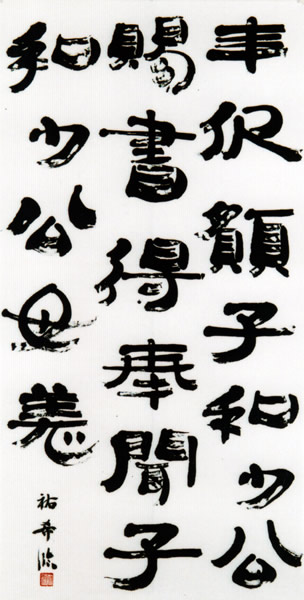 伏願子和少公
賜書得奉聞子
和少公毋恙
祐希臨